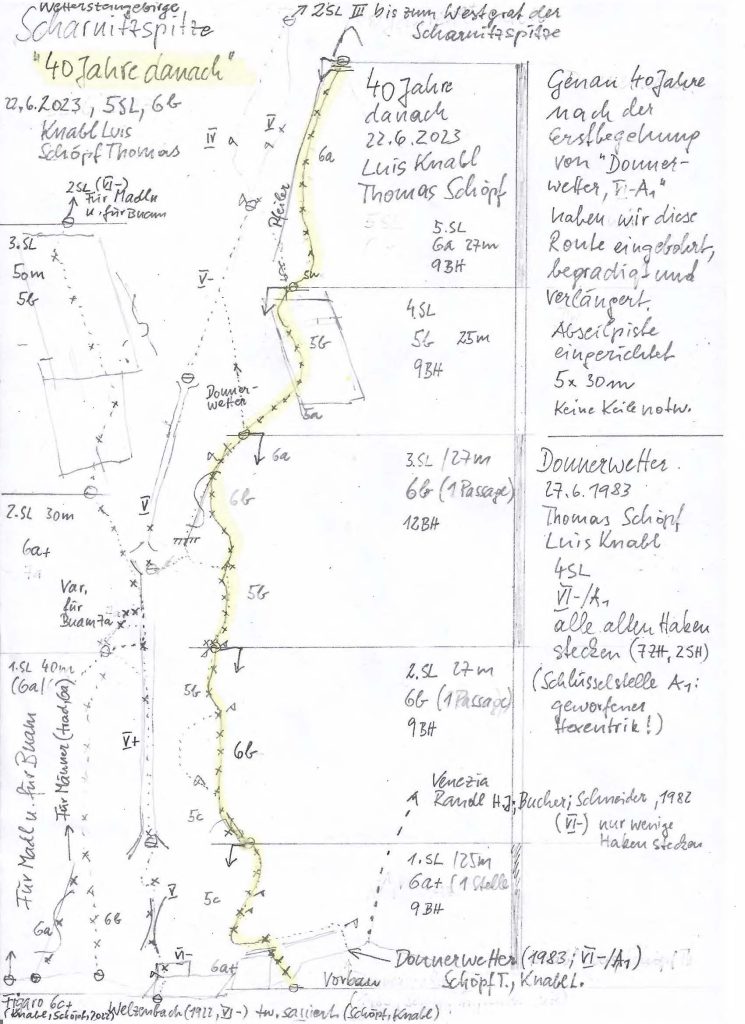 Wettersteingebirge
Scharnitzspitze
"40 Jahre danach"
22.6.2023, 5SL, 6b
Knabl Luis
Schöpf Thomas
2SL III bis zum Westgrat der
Scharnitzspitze
40 Jahre
danach
22.6.2023
Luis Knabl
Thomas Schöpf
5.SL
6a 27m
9BH
Genau 40 Jahre
nach der
Erstbegehung
von "Donner-
wetter, VI-A1"
haben wir diese
Route eingebohrt,
begradigt und
verlängert.
Abseilpiste
eingerichtet
5x 30m
Keine Keile notw.
4.SL
5b 25m
9BH
3.SL /27m
6b (1 Passage)
12BH
2.SL 27m
6b (1 Passage)
9BH
1.SL /25m
6a+ (1 Stelle
9BH
Donnerwetter
27.6.1983
Thomas Schöpf
Luis Knabl
4SL
VI-/A1
alle alten Haken
stecken (7ZH, 2SH)
(Schlüsselstelle A1:
geworfener
Hexentrik!)
Venezia
Randl H.J; Bucher; Schneider, 1982
(VI-) nur wenige
Haken stecken
Donnerwetter (1983; VI-/A1)
Schöpf T., Knabl L.
Vorbau
2SL (VI-)
Für Madln
u. für Buam
3.SL
50m
5b
2.SL 30m
6a+
7a
Var.
für
Buam 7a
1.SL 40m
(6a)
Für Madl u. für Buam
Für Männer (trad, 6a)
6a
6b
IV
V
V-
Pfeiler
6a
5b
5a
Donner-
wetter
6a
6b
V
5b
5b
6b
V+
5c
5c
V
VI-
6a+
Figaro 6c+
(Knabl, Schöpf, 2022)
Welzenbach (1922, VI-) tw. saniert (Schöpf, Knabl)